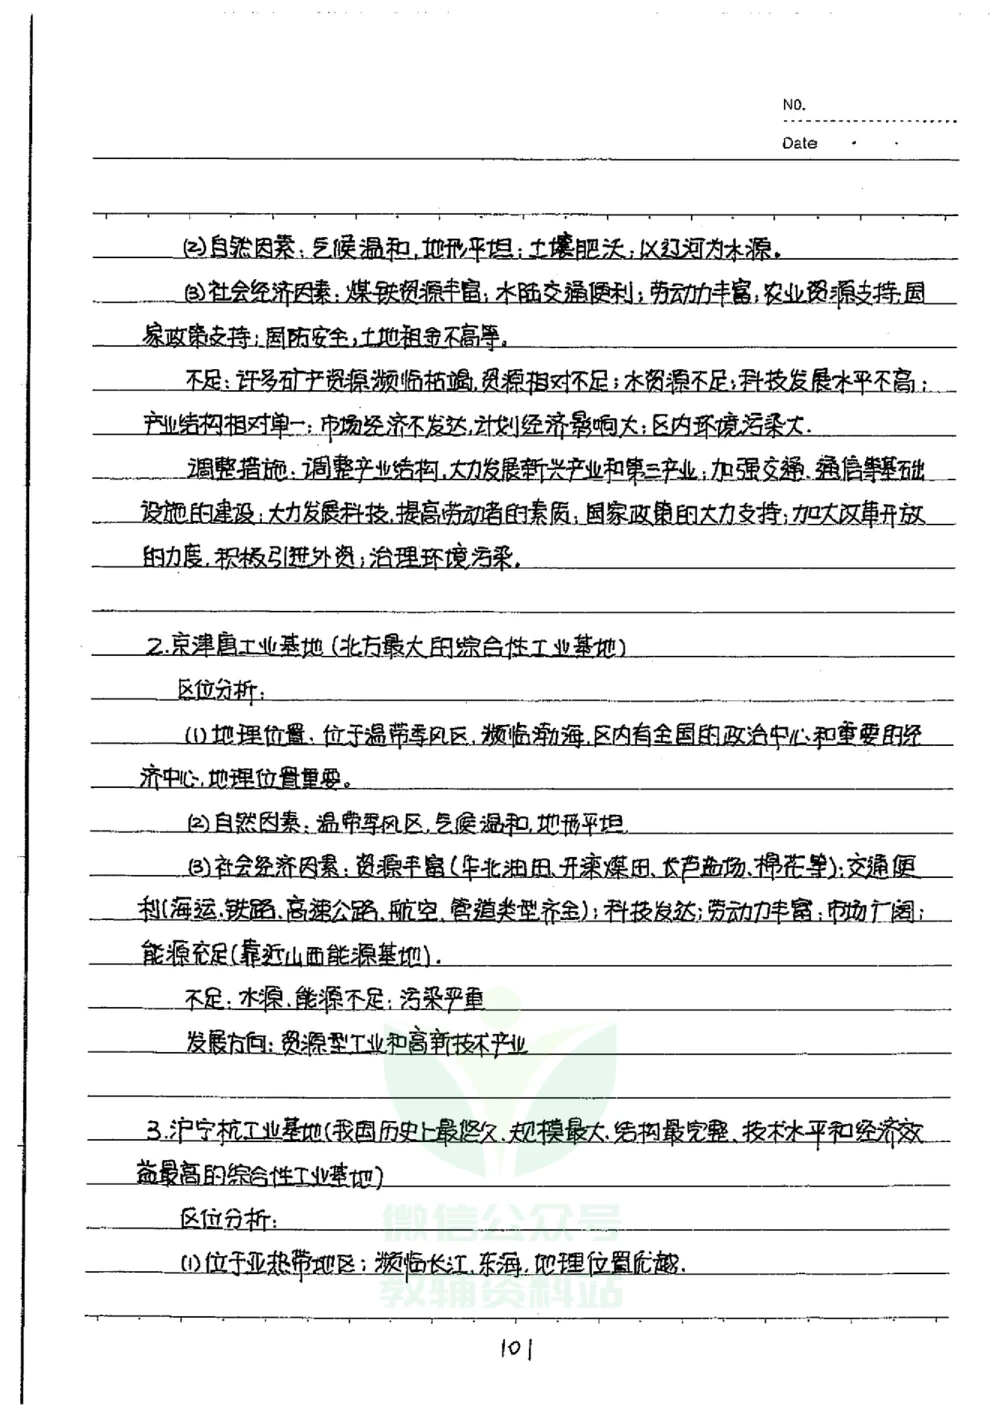 NO.
Date
(2)自然因素：气候温和，地形平坦；土壤肥沃；以辽河为水源。
(3)社会经济因素：煤铁资源丰富；水陆交通便利；劳动力丰富；农业资源支持；国
家政策支持；国防安全；土地租金不高等。
不足：许多矿产资源濒临枯竭，资源相对不足；水资源不足；科技发展水平不高；
产业结构相对单一；市场经济不发达，计划经济影响大；区内环境污染大．
调整措施：调整产业结构，大力发展新兴产业和第三产业；加强交通、通信等基础
设施的建设；大力发展科技，提高劳动者的素质；国家政策的大力支持；加大改革开放
的力度，积极引进外资；治理环境污染。
2.京津唐工业基地（北方最大的综合性工业基地）
区位分析：
(1)地理位置：位于温带季风区，濒临渤海，区内有全国的政治中心和重要的经
济中心，地理位置重要。
(2)自然因素：温带季风区，气候温和，地形平坦
(3)社会经济因素：资源丰富（华北油田、开滦煤田、长芦盐场、棉花等）；交通便
利（海运、铁路、高速公路、航空、管道类型齐全）；科技发达；劳动力丰富；市场广阔；
能源充足（靠近山西能源基地）．
不足：水源、能源不足；污染严重
发展方向：资源型工业和高新技术产业
3.沪宁杭工业基地（我国历史上最悠久、规模最大、结构最完整、技术水平和经济效
益最高的综合性工业基地）
区位分析：
(1)位于亚热带地区；濒临长江、东海，地理位置优越．
微信公众号
教辅资料站
101